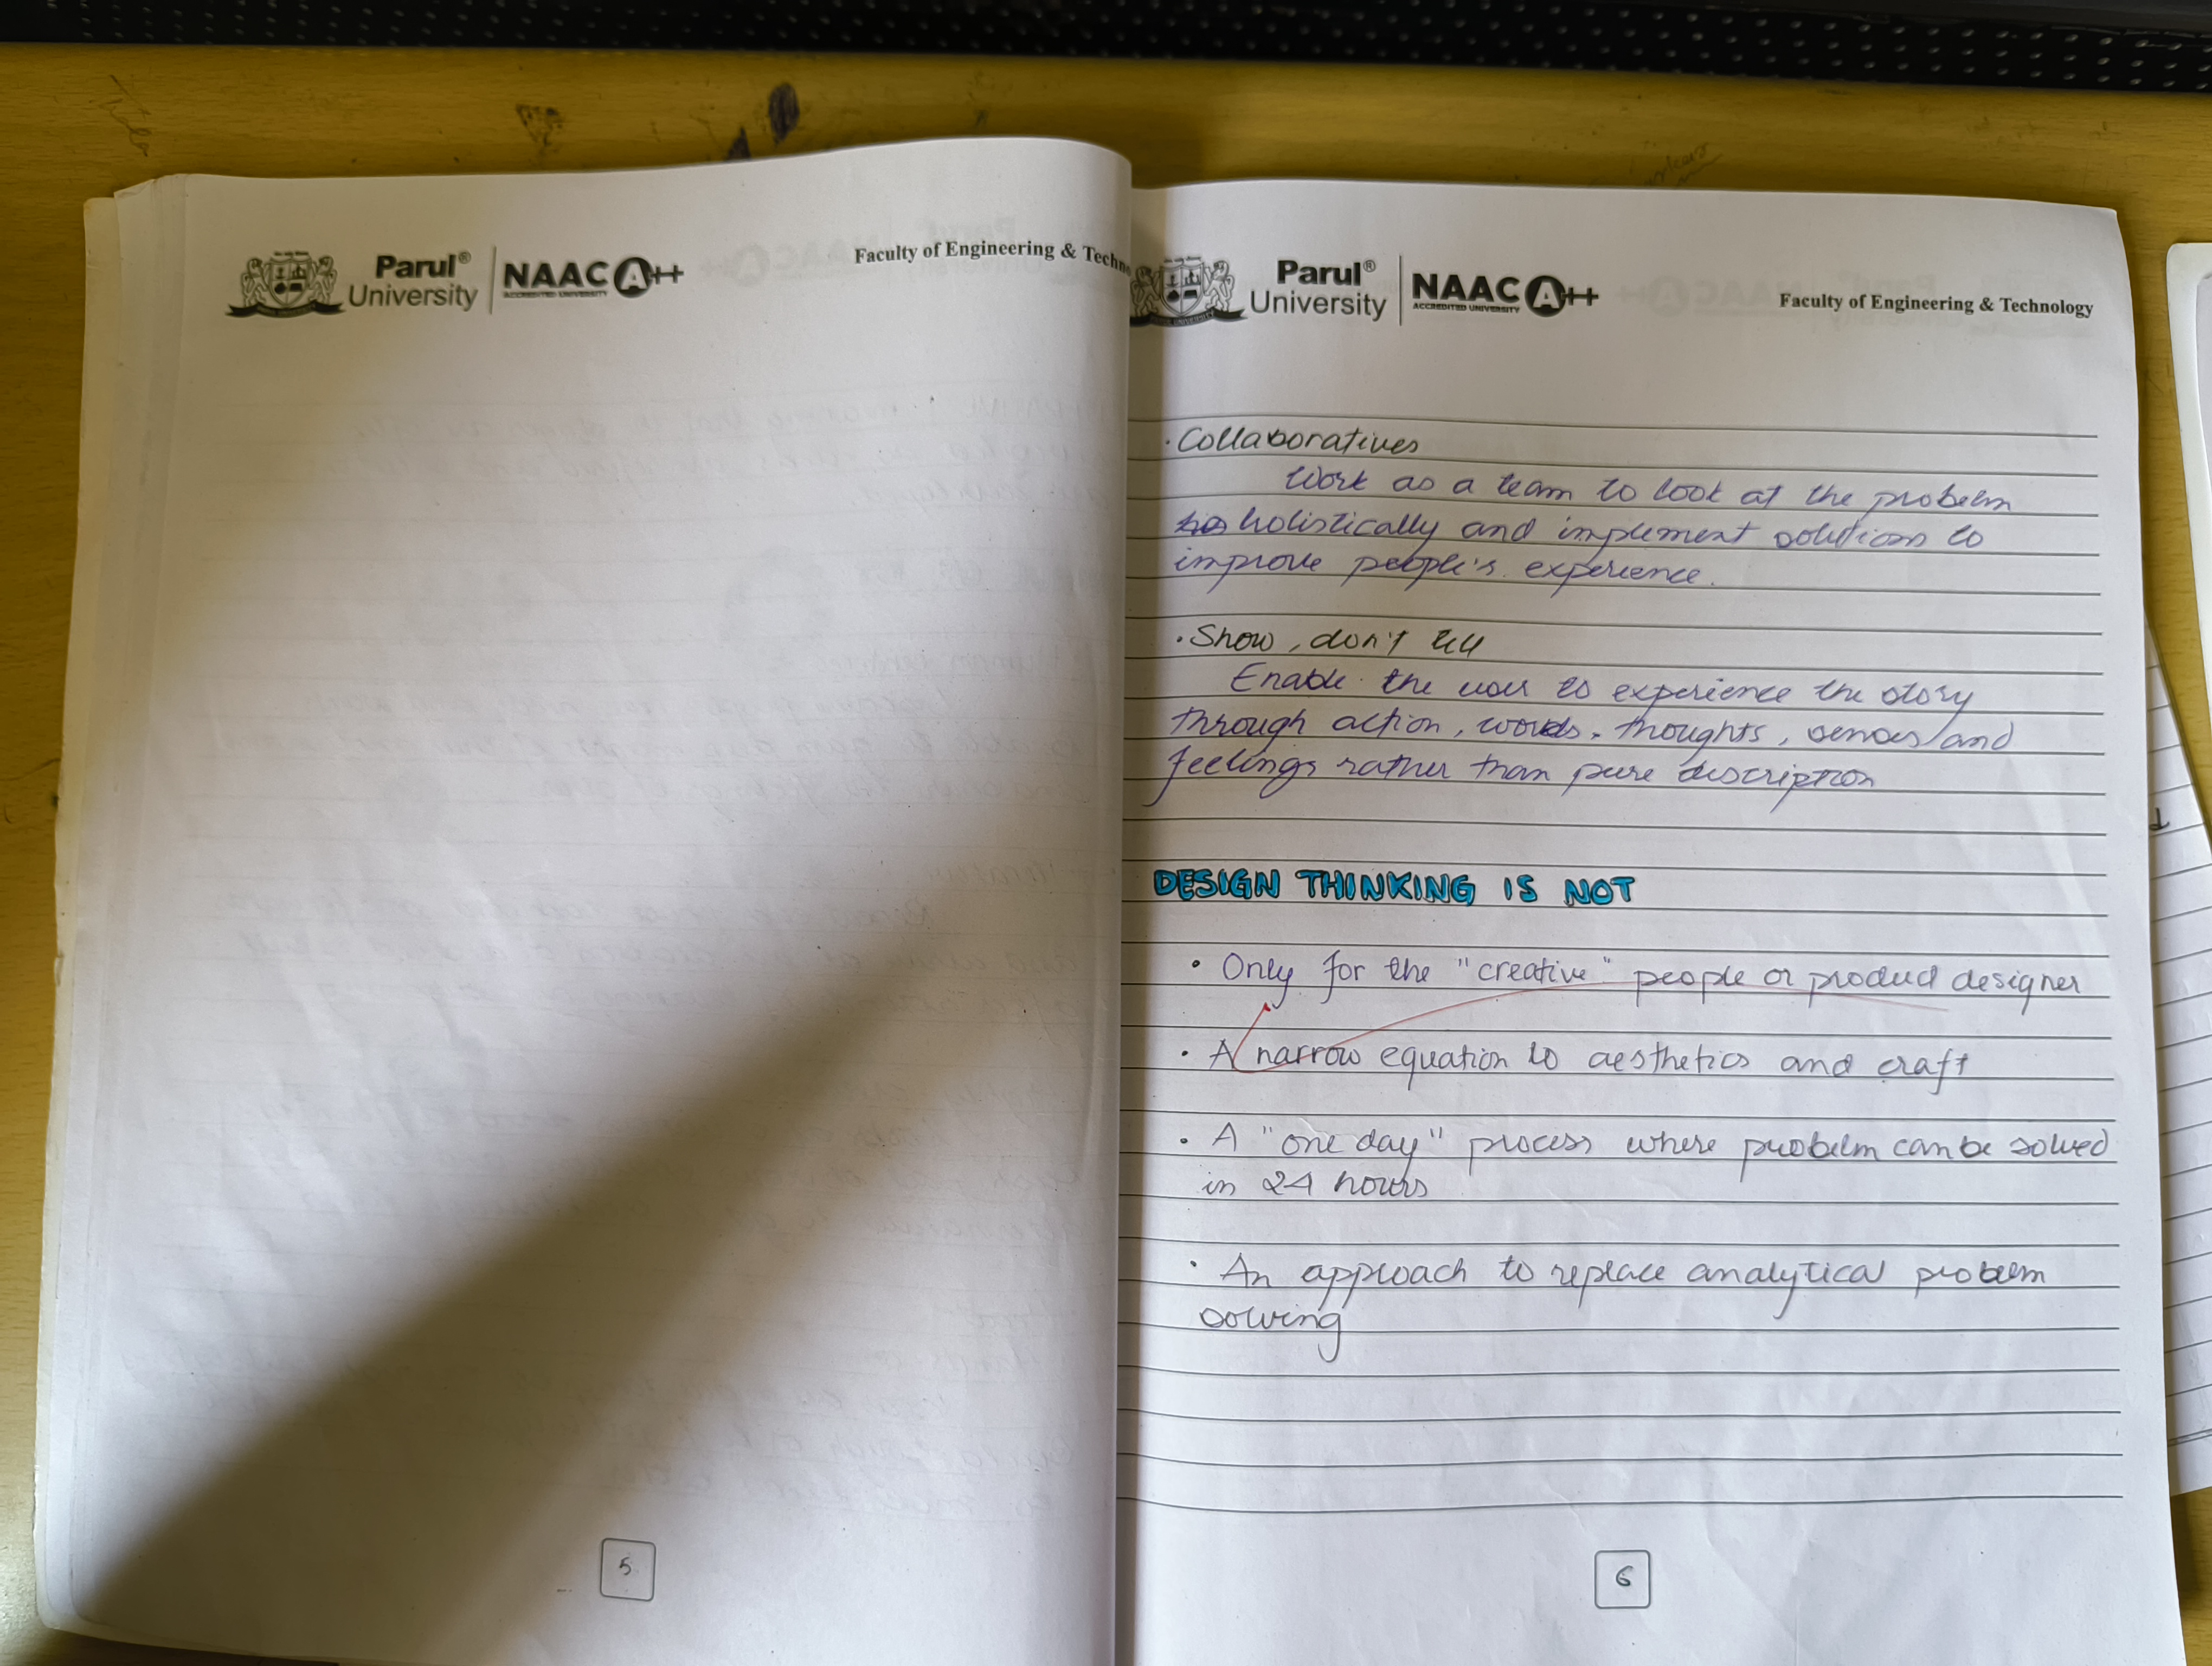 Parul®
University
NAAC A++
ACCREDITED UNIVERSITY
Faculty of Engineering & Techno
5
Parul®
University
NAAC A++
ACCREDITED UNIVERSITY
Faculty of Engineering & Technology
• Collaboratives
Work as a team to look at the probelm
holistically and implement solutions to
improve people's experience.
• Show, don't tell
Enable the user to experience the story
through action, words, thoughts, senses and
feelings rather than pure description
DESIGN THINKING IS NOT
• Only for the "creative" people or product designer
• A narrow equation to aesthetics and craft
• A "one day" process where probelm can be solved
in 24 hours
• An approach to replace analytical probelm
solving
6